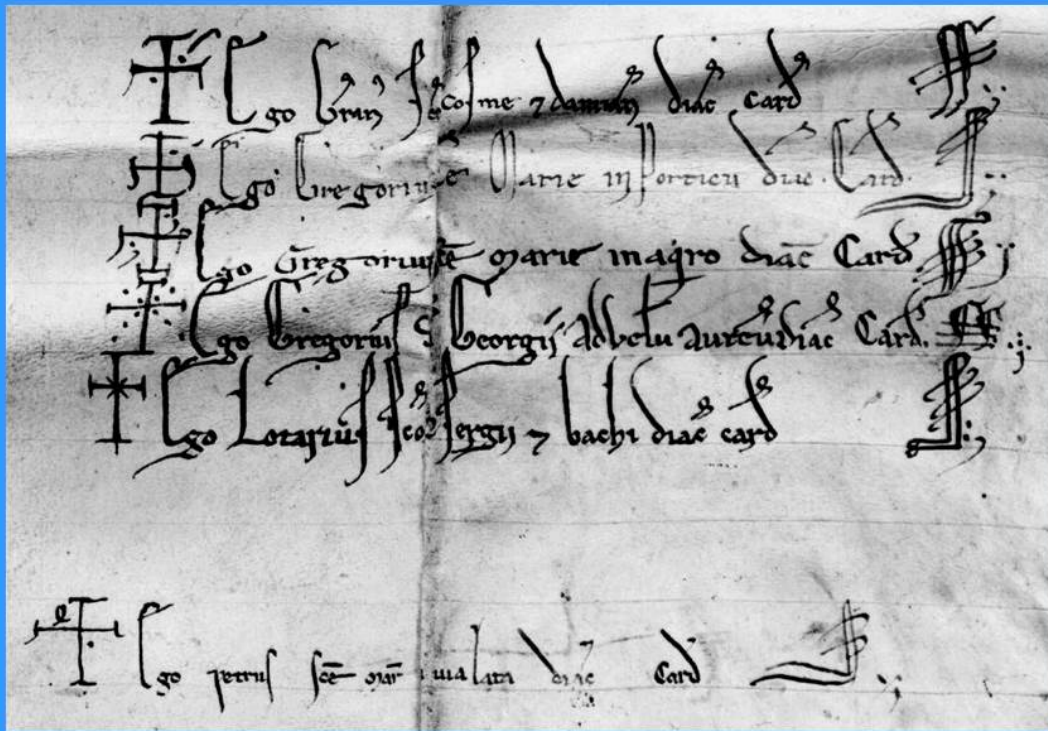 Ego Gr̄an̄ sc̄o℞ Cosme ⁊ damiani diac̄ Card
Ego Gregorius sc̄e Marie in Porticu diac̄. Card.
Ego Gregorius sc̄e Marie in aq̇ro diac̄ Card.
Ego Gregorius sc̄i Georgii Ad Velū Aureū diac̄ Card.
Ego Lotariuſ ſc̄o℞ ſergii ⁊ bachi diac̄ card
Ego petruſ ſc̄e mar̄ i uia lata diac̄ Card